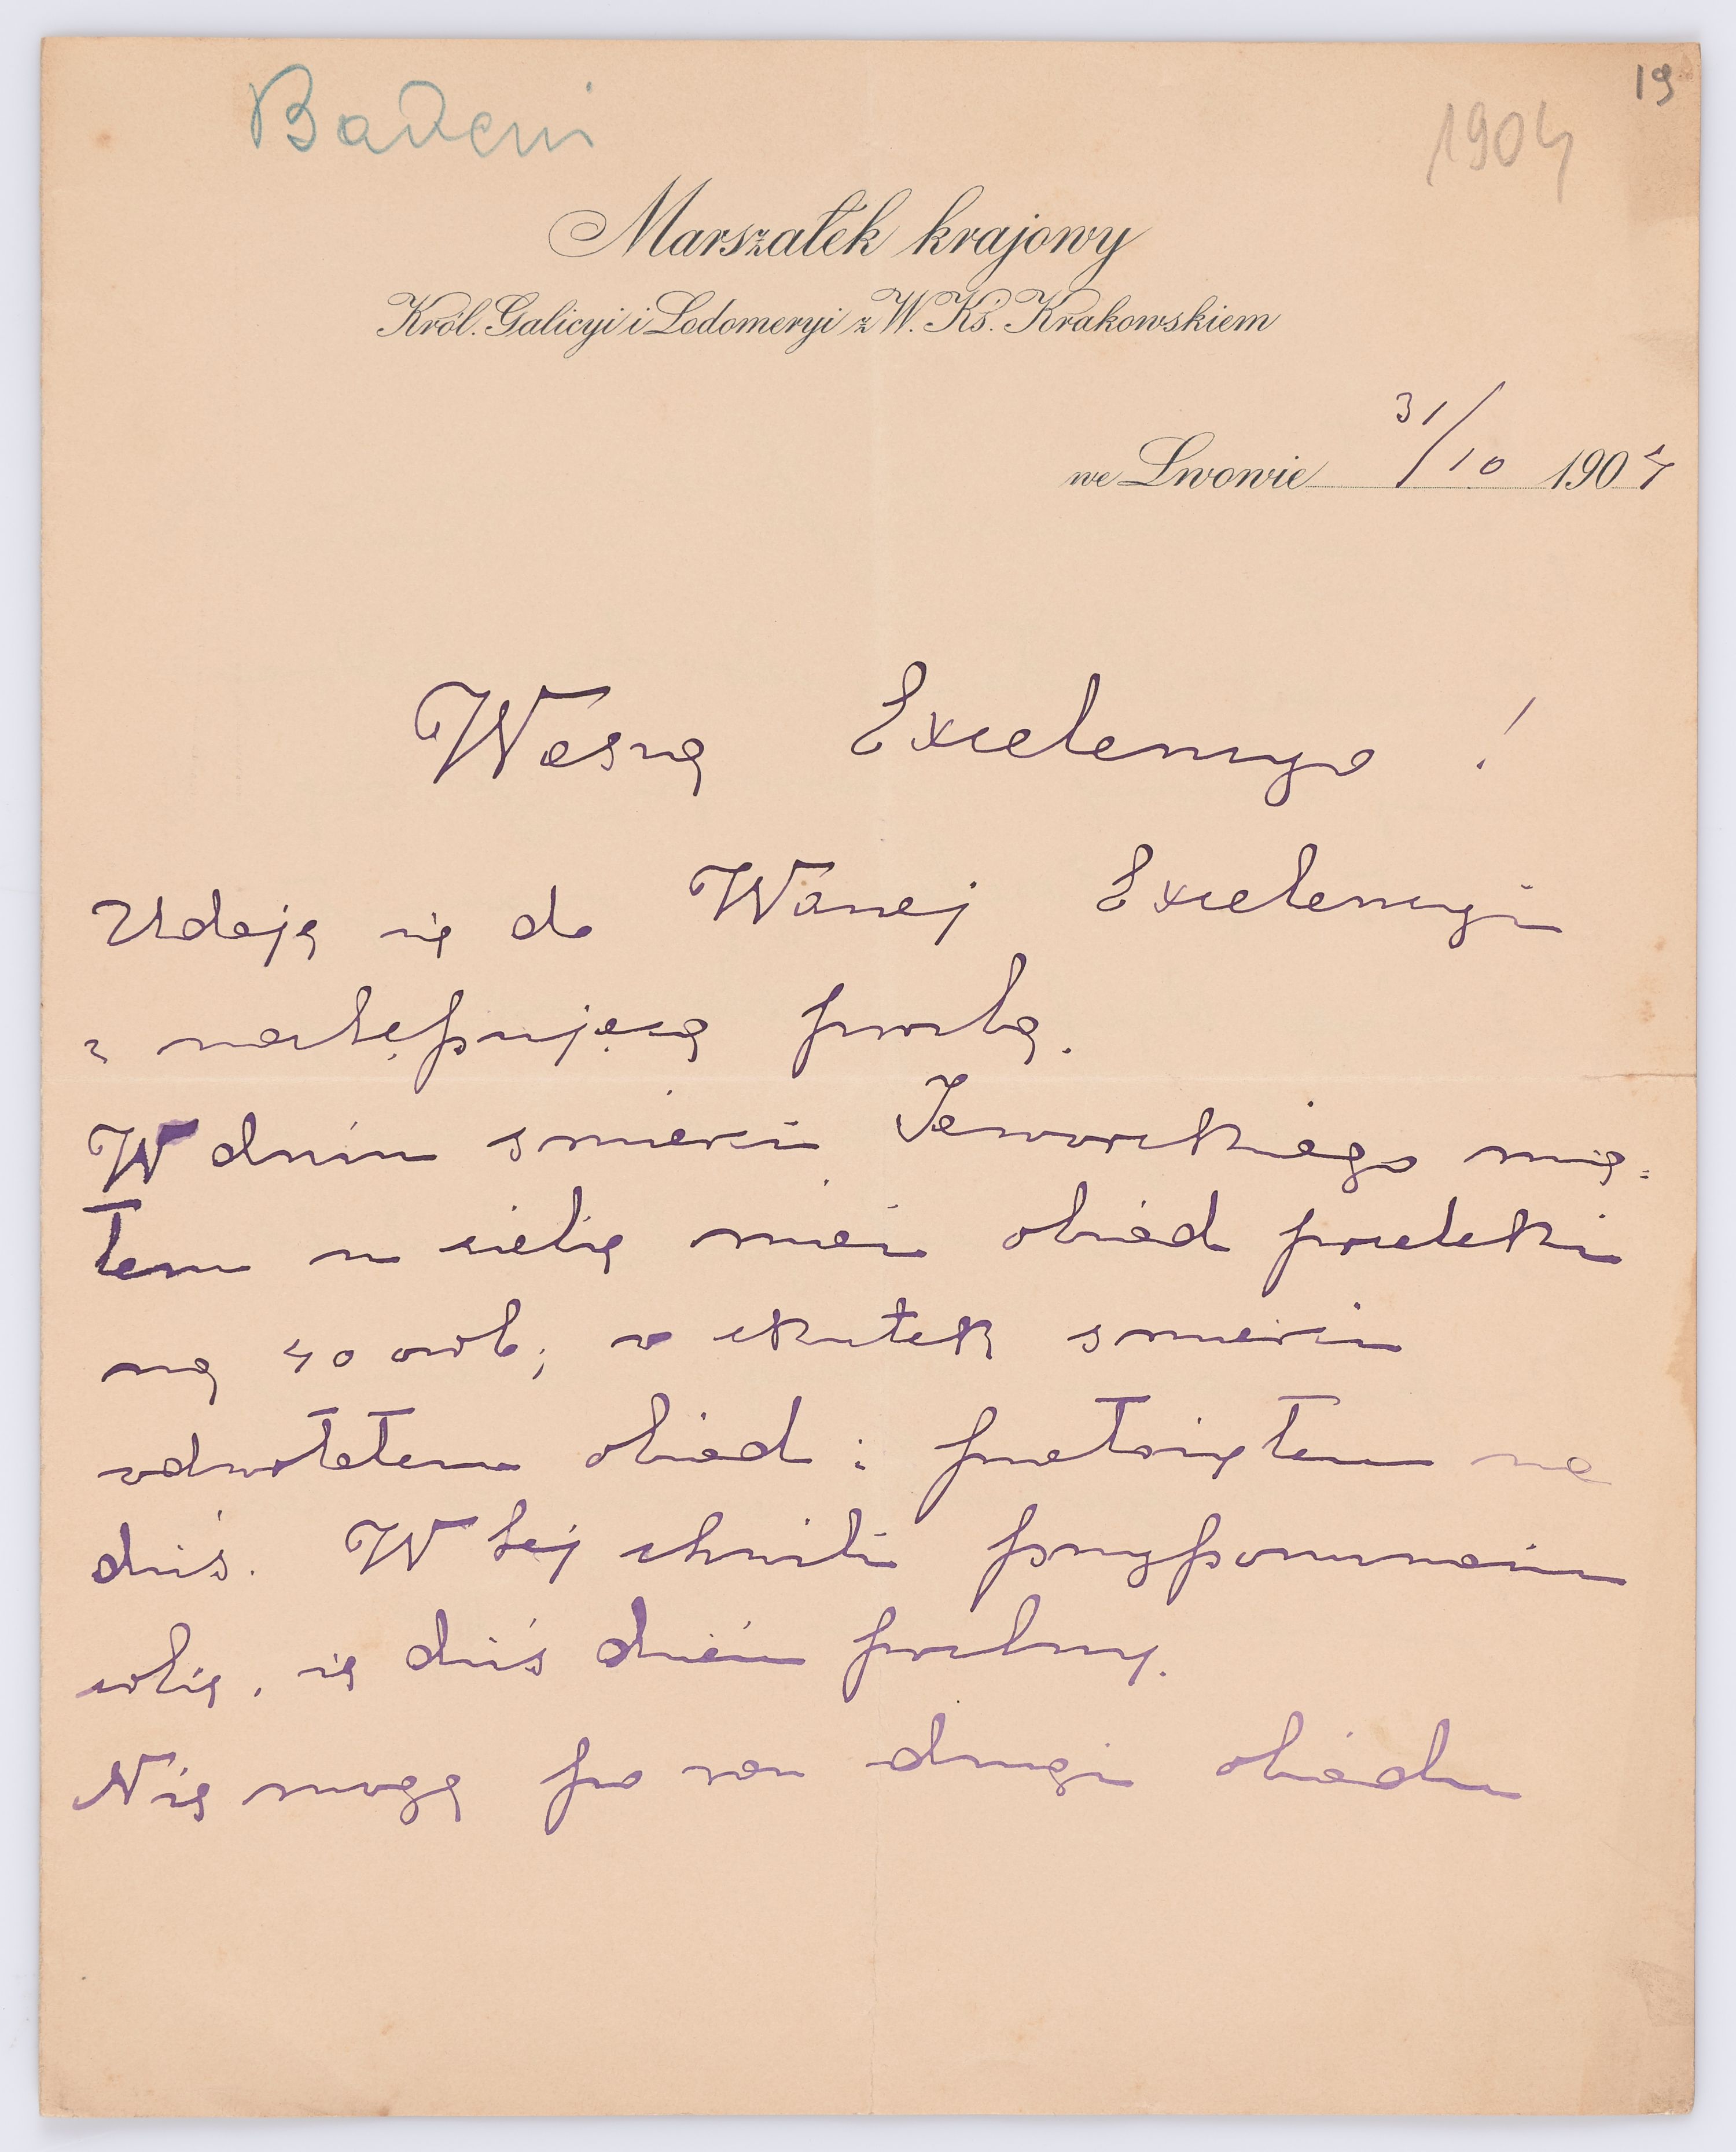 Badeni
19
1904
Marszałek krajowy
Król. Galicyi i Lodomeryi z W. Ks. Krakowskiem
we Lwowie 31/10 1904
Wasza Excelencyo !
Udaję się do Waszej Excelencyi
z następującą prośbą.
W dniu śmierci Jaworskiego mia=
łem u siebie mieć obiad poselski
na 40 osób; w skutek śmierci
odwołałem obiad i przełożyłem na
dziś. W tej chwili przypominam
sobie, że dziś dzień postny.
Nie mogę po raz drugi obiadu